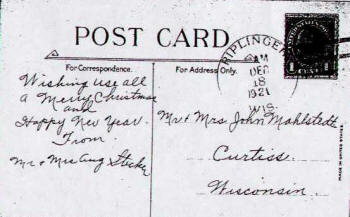 POST CARD
For Correspondence.
For Address Only.
RIPLINGER
AM
DEC
18
1921
WIS.
Wishing use all
a Merry Christmas
and
Happy New Year.
From
Mr + Mrs Aug
Mr + Mrs John Mahlstedt
Curtiss
Wisconsin.
MADE IN UNITED STATES